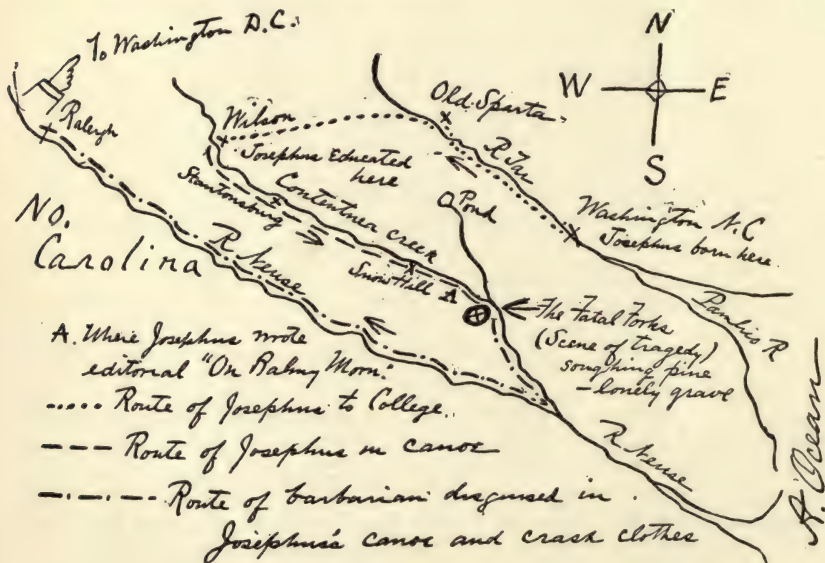 To Washington D.C.
N
W E
S
Raleigh
Wilson
Old Sparta
Josephus Educated
here
R Tar
Stantonsburg
Contentnea creek
Pond
Washington N.C
Josephus born here
No.
Carolina
R Neuse
Snow Hill A
The Fatal Forks
(Scene of tragedy)
soughing pine
- lonely grave
Pamlico R
A. Ocean
R Neuse
A. Where Josephus wrote
editorial "On Balmy Morn."
..... Route of Josephus to College.
--- Route of Josephus in canoe
-.-.- Route of barbarian disguised in
Josephus's canoe and crash clothes